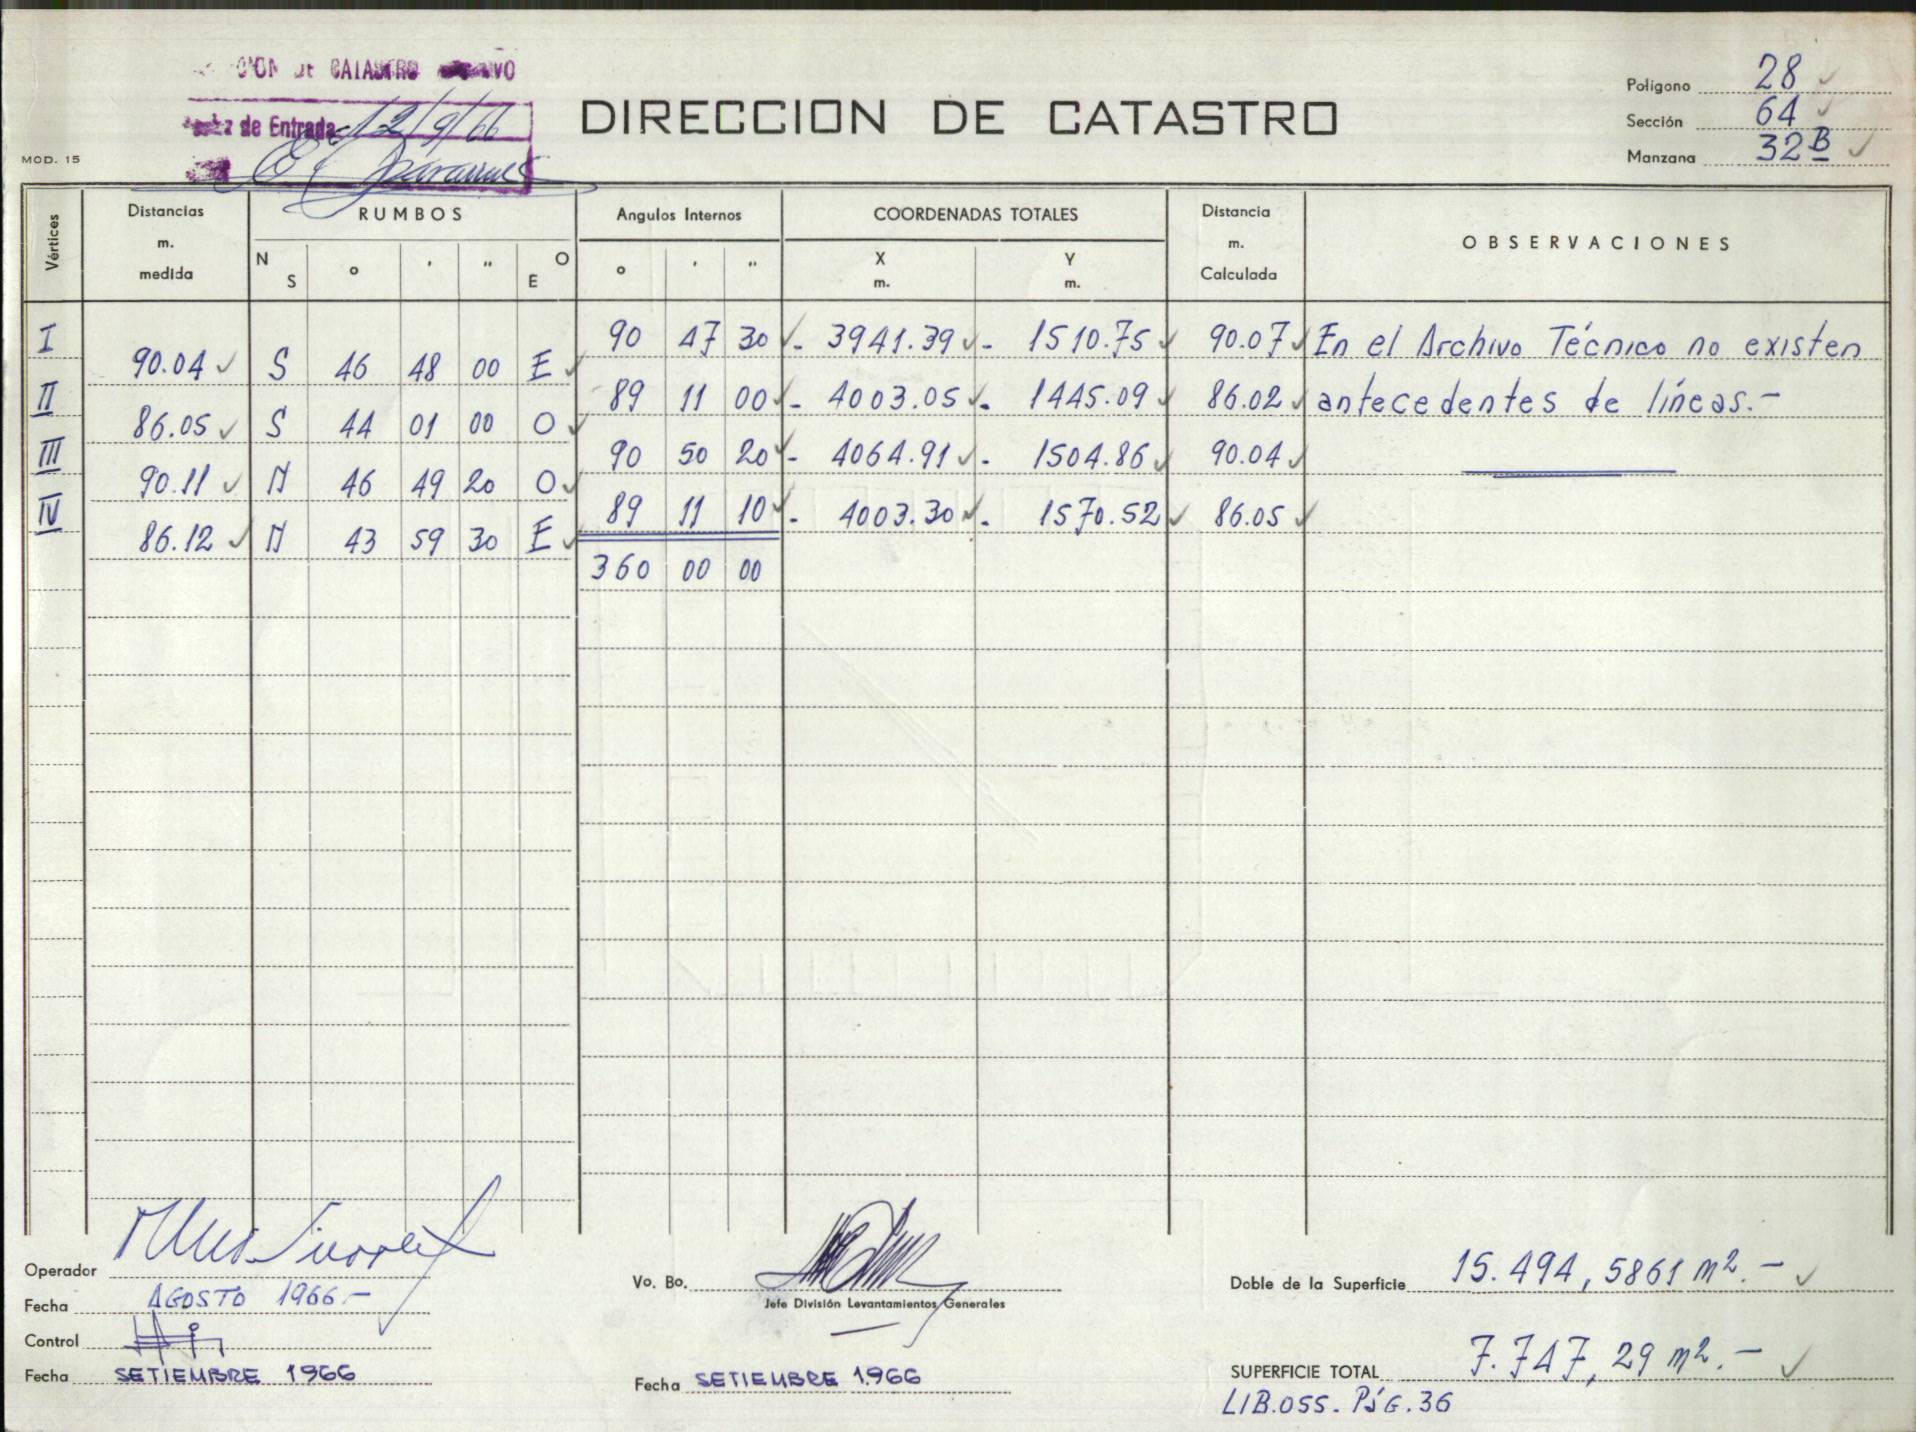 DE CATASTRO
de Entrada 12/9/66
DIRECCION DE CATASTRO
Polígono 28
Sección 64
Manzana 32B
MOD. 15
Vértices Distancias m. medida RUMBOS N S ° ' " O E Angulos Internos ° ' " COORDENADAS TOTALES X m. Y m. Distancia m. Calculada OBSERVACIONES
I 90 47 30 - 3941.39 - 1510.75 90.07 En el Archivo Técnico no existen
90.04 S 46 48 00 E
II 89 11 00 - 4003.05 - 1445.09 86.02 antecedentes de líneas.-
86.05 S 44 01 00 O
III 90 50 20 - 4064.91 - 1504.86 90.04
90.11 N 46 49 20 O
IV 89 11 10 - 4003.30 - 1570.52 86.05
86.12 N 43 59 30 E
360 00 00
Operador
Fecha AGOSTO 1966.-
Control
Fecha SETIEMBRE 1966
Vo. Bo.
Jefe División Levantamientos Generales
Fecha SETIEMBRE 1966
Doble de la Superficie 15.494,5861 m2.-
SUPERFICIE TOTAL 7.747,29 m2.-
LIB.OSS. PÁG.36